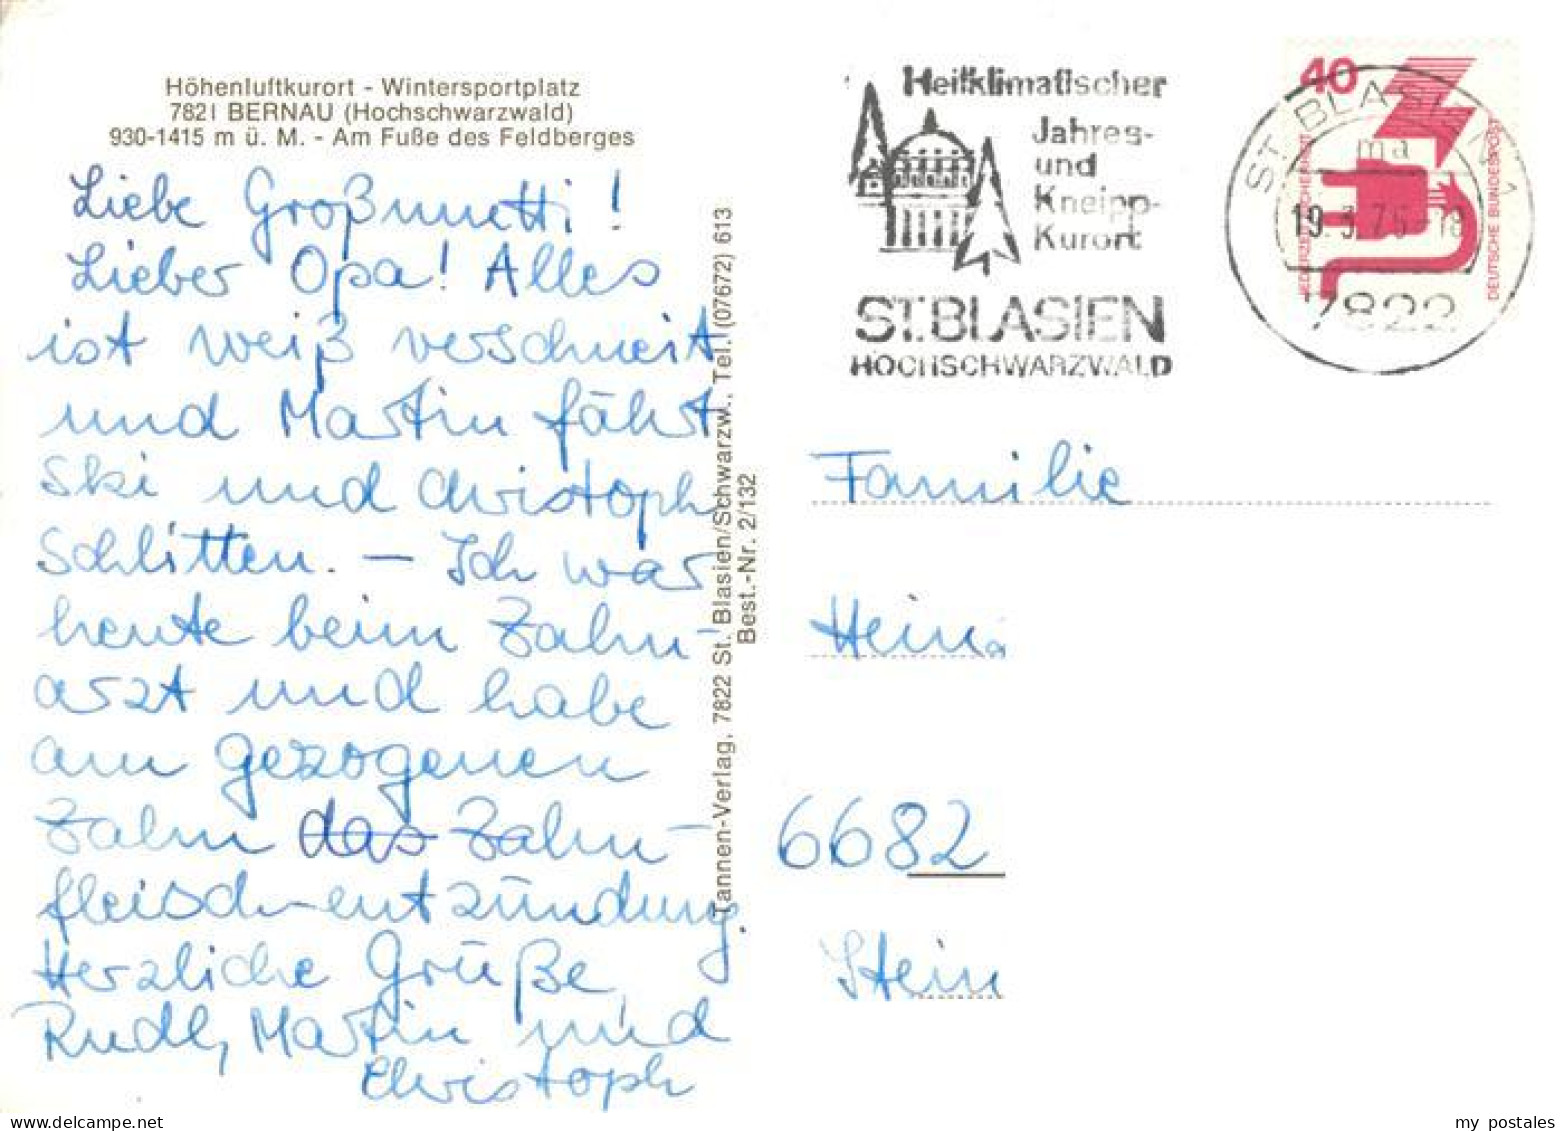 Höhenluftkurort - Wintersportplatz
7821 BERNAU (Hochschwarzwald)
930-1415 m ü. M. - Am Fuße des Feldberges
Liebe Großmutti!
Lieber Opa! Alles
ist weiß verschneit
und Martin fährt
Ski und Christoph
Schlitten. – Ich war
heute beim Zahn-
arzt und habe
am gezogenen
Zahn das Zahn-
fleisch-entzündung.
Herzliche Grüße
Rudl, Martin und
Christoph
Tannen-Verlag, 7822 St. Blasien/Schwarzw., Tel. (07672) 613
Best.-Nr. 2/132
Heilklimatischer
Jahres-
und
Kneipp-
Kurort
ST. BLASIEN
HOCHSCHWARZWALD
ST. BLASIEN 1
ma
7822
40
JEDERZEIT SICHERHEIT
DEUTSCHE BUNDESPOST
Familie
6682
Stein
my postales